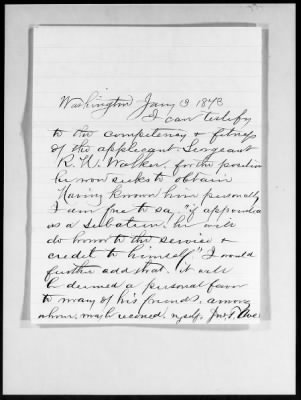 Washington Jany 9 1873
I can testify
to the competency & fitness
of the applicant Sergeant
R. W. Walker, for the position
he now seeks to obtain
Having known him personally
I am free to say, "if appointed
as a subaltern, he will
do honor to the service &
credit to himself" I would
further add that it will
be deemed a personal favor
to many of his friends, among
whom, may be reconed, myself.